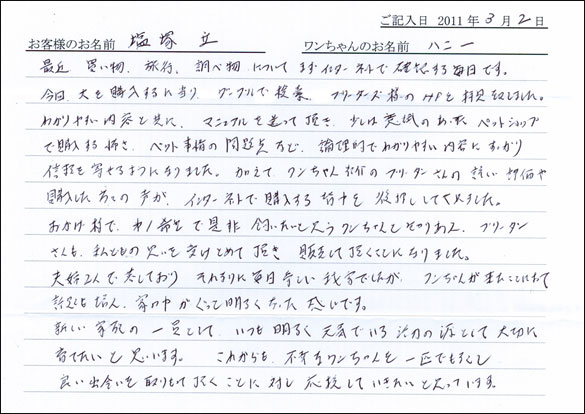 ご記入日 2011年3月2日
お客様のお名前 塩塚 立 ワンちゃんのお名前 ハニー
最近 買い物、旅行、調べ物 について まずインターネットで確認する毎日です。
今回、犬を購入するに当り、グーグルで検索、ブリーダーズ様のHPを拝見しました。
わかりやすい内容と共に、マニュアルを送って頂き、少しは意識のあったペットショップ
で購入する怖さ、ペット事情の問題点など、論理的でわかりやすい内容にすっかり
信頼を寄せるようになりました。加えて、ワンちゃん 各ブリーダーさんの 評価や
購入した方の声が、インターネットで購入する 後押してくれました。
おかげ様で、第1希望で是非 飼いたいと思うワンちゃんとめぐりあえ、ブリーダー
さんも、私どもの思いを受けとめて頂き 販売して頂くことになりました。
夫婦2人で暮しており それなりに毎日楽しい我家でしたが、ワンちゃんが来たことによって
会話も増え、家の中がぐっと明るくなった感じです。
新しい家族の一員として、いつも明るく元気でいる活力の源として大切に
育てたいと思います。 これからも、不幸なワンちゃんを一匹でもなくし
良い出会いを取りもって頂くことに対し 応援していきたいと思っています。